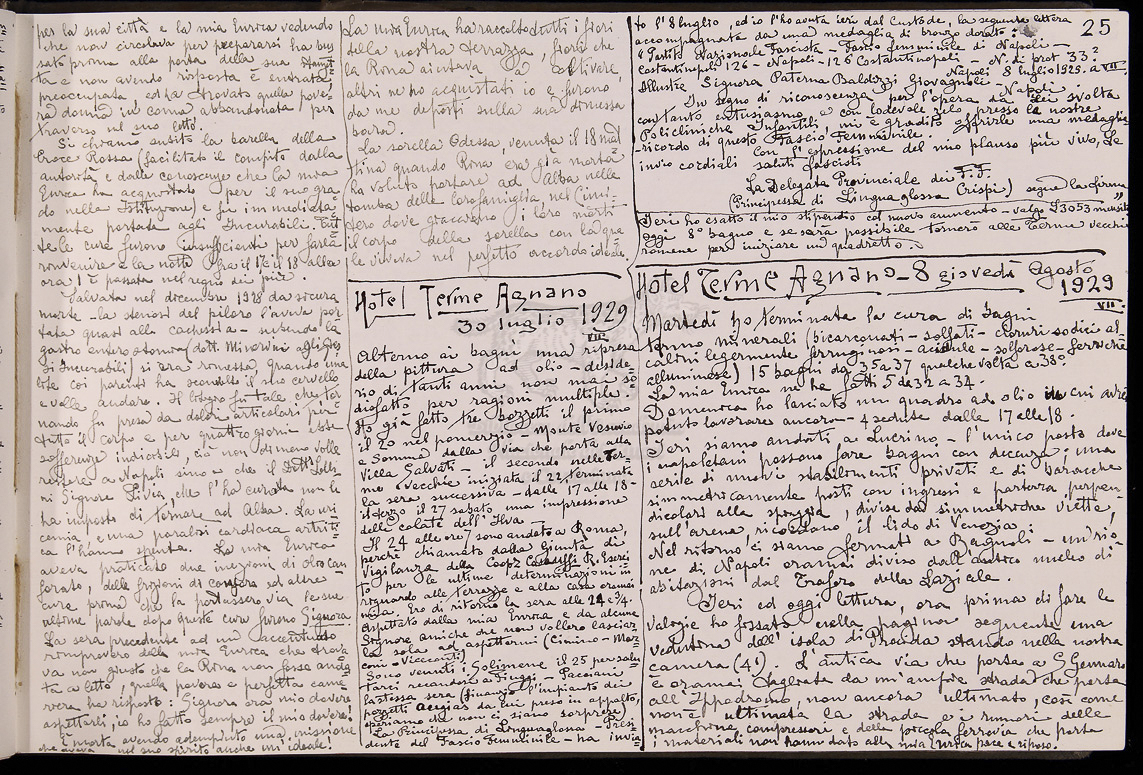 per la sua città e la mia Enrica vedendo
che non circolava per prepararsi ha bus
sato prima alla porta della sua
ta e non avendo risposta è entrata
preoccupata ed ha trovato quella pove-
ra donna in coma abbandonata per
traverso sul suo letto.
Si chiamò subito la barella della
Croce Rossa (facilitato il compito dalla
autorità e dalle conoscenze che la mia
Enrica ha acquistato per il suo gra
do nella Istituzione) e fu immediata-
mente portata agli Incurabili. Tut
te le cure furono insufficienti per farla
rinvenire e la notte fra il 17 e il 18 alla
ora 1 è passata nel regno dei più.
Salvata nel dicembre 1928 da sicura
morte - la stenosi del piloro l'aveva por
tata quasi alla cachessia - subendo la
gastro enterostomia (dott. Minervini agli
Incurabili) si era rimessa, quando una
lite coi parenti ha sconvolto il suo cervello
e volle andare. Il bisogno fu tale che tor
nando fu presa da dolori articolari per
tutto il corpo e per quattro giorni
sofferenze indicibili, ciò non di meno volle
restare a Napoli sino a che il Dott.
ni Signore Livia, che l'ha curata non le
ha imposto di tornare ad Alba. La uri
cemia, e una paralisi cardiaca artriti
ca l'hanno spenta. La mia Enrica
aveva praticato due iniezioni di olio can
forato, delle frizioni di canfora ed altre
cure prima che la portassero via le sue
ultime parole dopo queste cure furono Signora.
La sera precedente ad un accentuato
rimprovero della mia Enrica che trova
va non giusto che la Rina non fosse anda
ta a letto, quella povera e perfetta came
riera ha risposto: Signora era mio dovere
aspettarli, io ho fatto sempre il mio dovere!
È morta avendo adempiuto una missione
che aveva nel suo spirito anche un ideale!
La mia Enrica ha raccolto tutti i fiori
della nostra terrazza, fiori che
la Rina aiutava a coltivare,
altri ne ho acquistati io e furono
da me deposti sulla sua dimessa
bara.
La sorella Odessa, venuta il 18 mat
tina quando Rina era già morta
ha voluto portare ad Alba nella
tomba della loro famiglia, nel Cimi-
tero dove giacciono i loro morti
il corpo della sorella con la qua
le viveva nel perfetto accordo ideale.
Hotel Terme Agnano
30 luglio 1929
VII
Alterno ai bagni una ripresa
della pittura ad olio - deside-
rio di tanti anni non mai so-
disfatto per ragioni multiple.
Ho già fatto tre bozzetti il primo
il 20 nel pomeriggio - Monte Vesuvio
e Somma dalla via che porta alla
Villa Salvati - il secondo nelle Ter-
me vecchie iniziata il 22, terminata
la sera successiva - dalle 17 alle 18 -
il terzo il 27 sabato una impressione
delle colate dell'Ilva -
Il 24 alle ore 7 sono andato a Roma,
perché chiamato dalla Giunta di
Vigilanza della Coop.
to per le ultime determinazioni in
riguardo alle terrazze e alla casa oramai
mia. Ero di ritorno la sera alle 24 e 3/4.
Aspettato dalla mia Enrica e da alcune
Signore amiche che non vollero lasciar
la sola ad aspettarmi (Cimino - Mar
coni e Visconti)
Sono venuti: Solimene il 25 per salu
tarci recandosi a Fiuggi - Pacciani
la stessa sera (finanzò l'impianto dei
pozzetti
speriamo che non ci siano sorprese)
La Principessa di Linguaglossa Presi
dente del Fascio Femminile - ha invia-
25
to l'8 luglio, ed io l'ho avuta ieri dal Custode, la seguente lettera
accompagnata da una medaglia di bronzo dorato:
"Partito Nazionale Fascista - Fascio femminile di Napoli -
Costantinopoli 126 - Napoli - 126 Costantinopoli - N. di prot 33?
Napoli 8 luglio 1929. a VII
Illustre Signora Paterna Baldizzi Giovagnoli - Napoli.
In segno di riconoscenza per l'opera da Lei svolta
con tanto entusiasmo e con lodevole zelo presso le nostre
Policliniche Infantili mi è gradito offrirle una medaglia
-ricordo di questo Fascio Femminile.
Con l'espressione del mio plauso più vivo, Le
invio cordiali saluti fascisti
La Delegata Provinciale dei F.F.
(Principessa di Linguaglossa Crispi) segue la firma
Ieri ho esatto il mio stipendio col nuovo aumento - valgo £ 3053 mensili
oggi 8° bagno e se sarà possibile tornerò alle Terme vecchie
romane per iniziare un quadretto.
Hotel Terme Agnano - 8 giovedì Agosto
1929
VII.
Martedì ho terminata la cura di bagni
termo minerali (bicarbonati - solfati - cloruri sodici al-
calini leggermente ferruginosi - acidule - solforose - ferriche
alluminose) 15 bagni da 35 a 37 qualche volta a 38°
La mia Enrica ne ha fatti 5 da 32 a 34.
Domenica ho lasciato un quadro ad olio in cui avrei
potuto lavorare ancora - 4 sedute dalle 17 alle 18
Ieri siamo andati a Lucrino - l'unico posto dove
i napoletani possono fare bagni con decenza: una
serie di nuovi stabilimenti privati e di baracche
simmetricamente posti con ingressi e partenza perpen-
dicolari alla spiaggia, divise da simmetriche viette,
sull'arena, ricordano il lido di Venezia.
Nel ritorno ci siamo fermati a Bagnoli - un rio-
ne di Napoli oramai diviso dall'antico nucleo di
abitazioni dal Traforo della Laziale.
Ieri ed oggi lettura, ora prima di fare le
valigie ho fissato nella pagina seguente una
vedutina dell'isola di Procida stando nella nostra
camera (41). L'antica via che porta a S. Gennaro
è oramai tagliata da un'ampia strada che porta
all'Ippodromo, non ancora ultimato, così come
non è ultimata la strada e i rumori delle
macchine compressori e della piccola ferrovia che porta
i materiali non hanno dato alla mia Enrica pace e riposo.